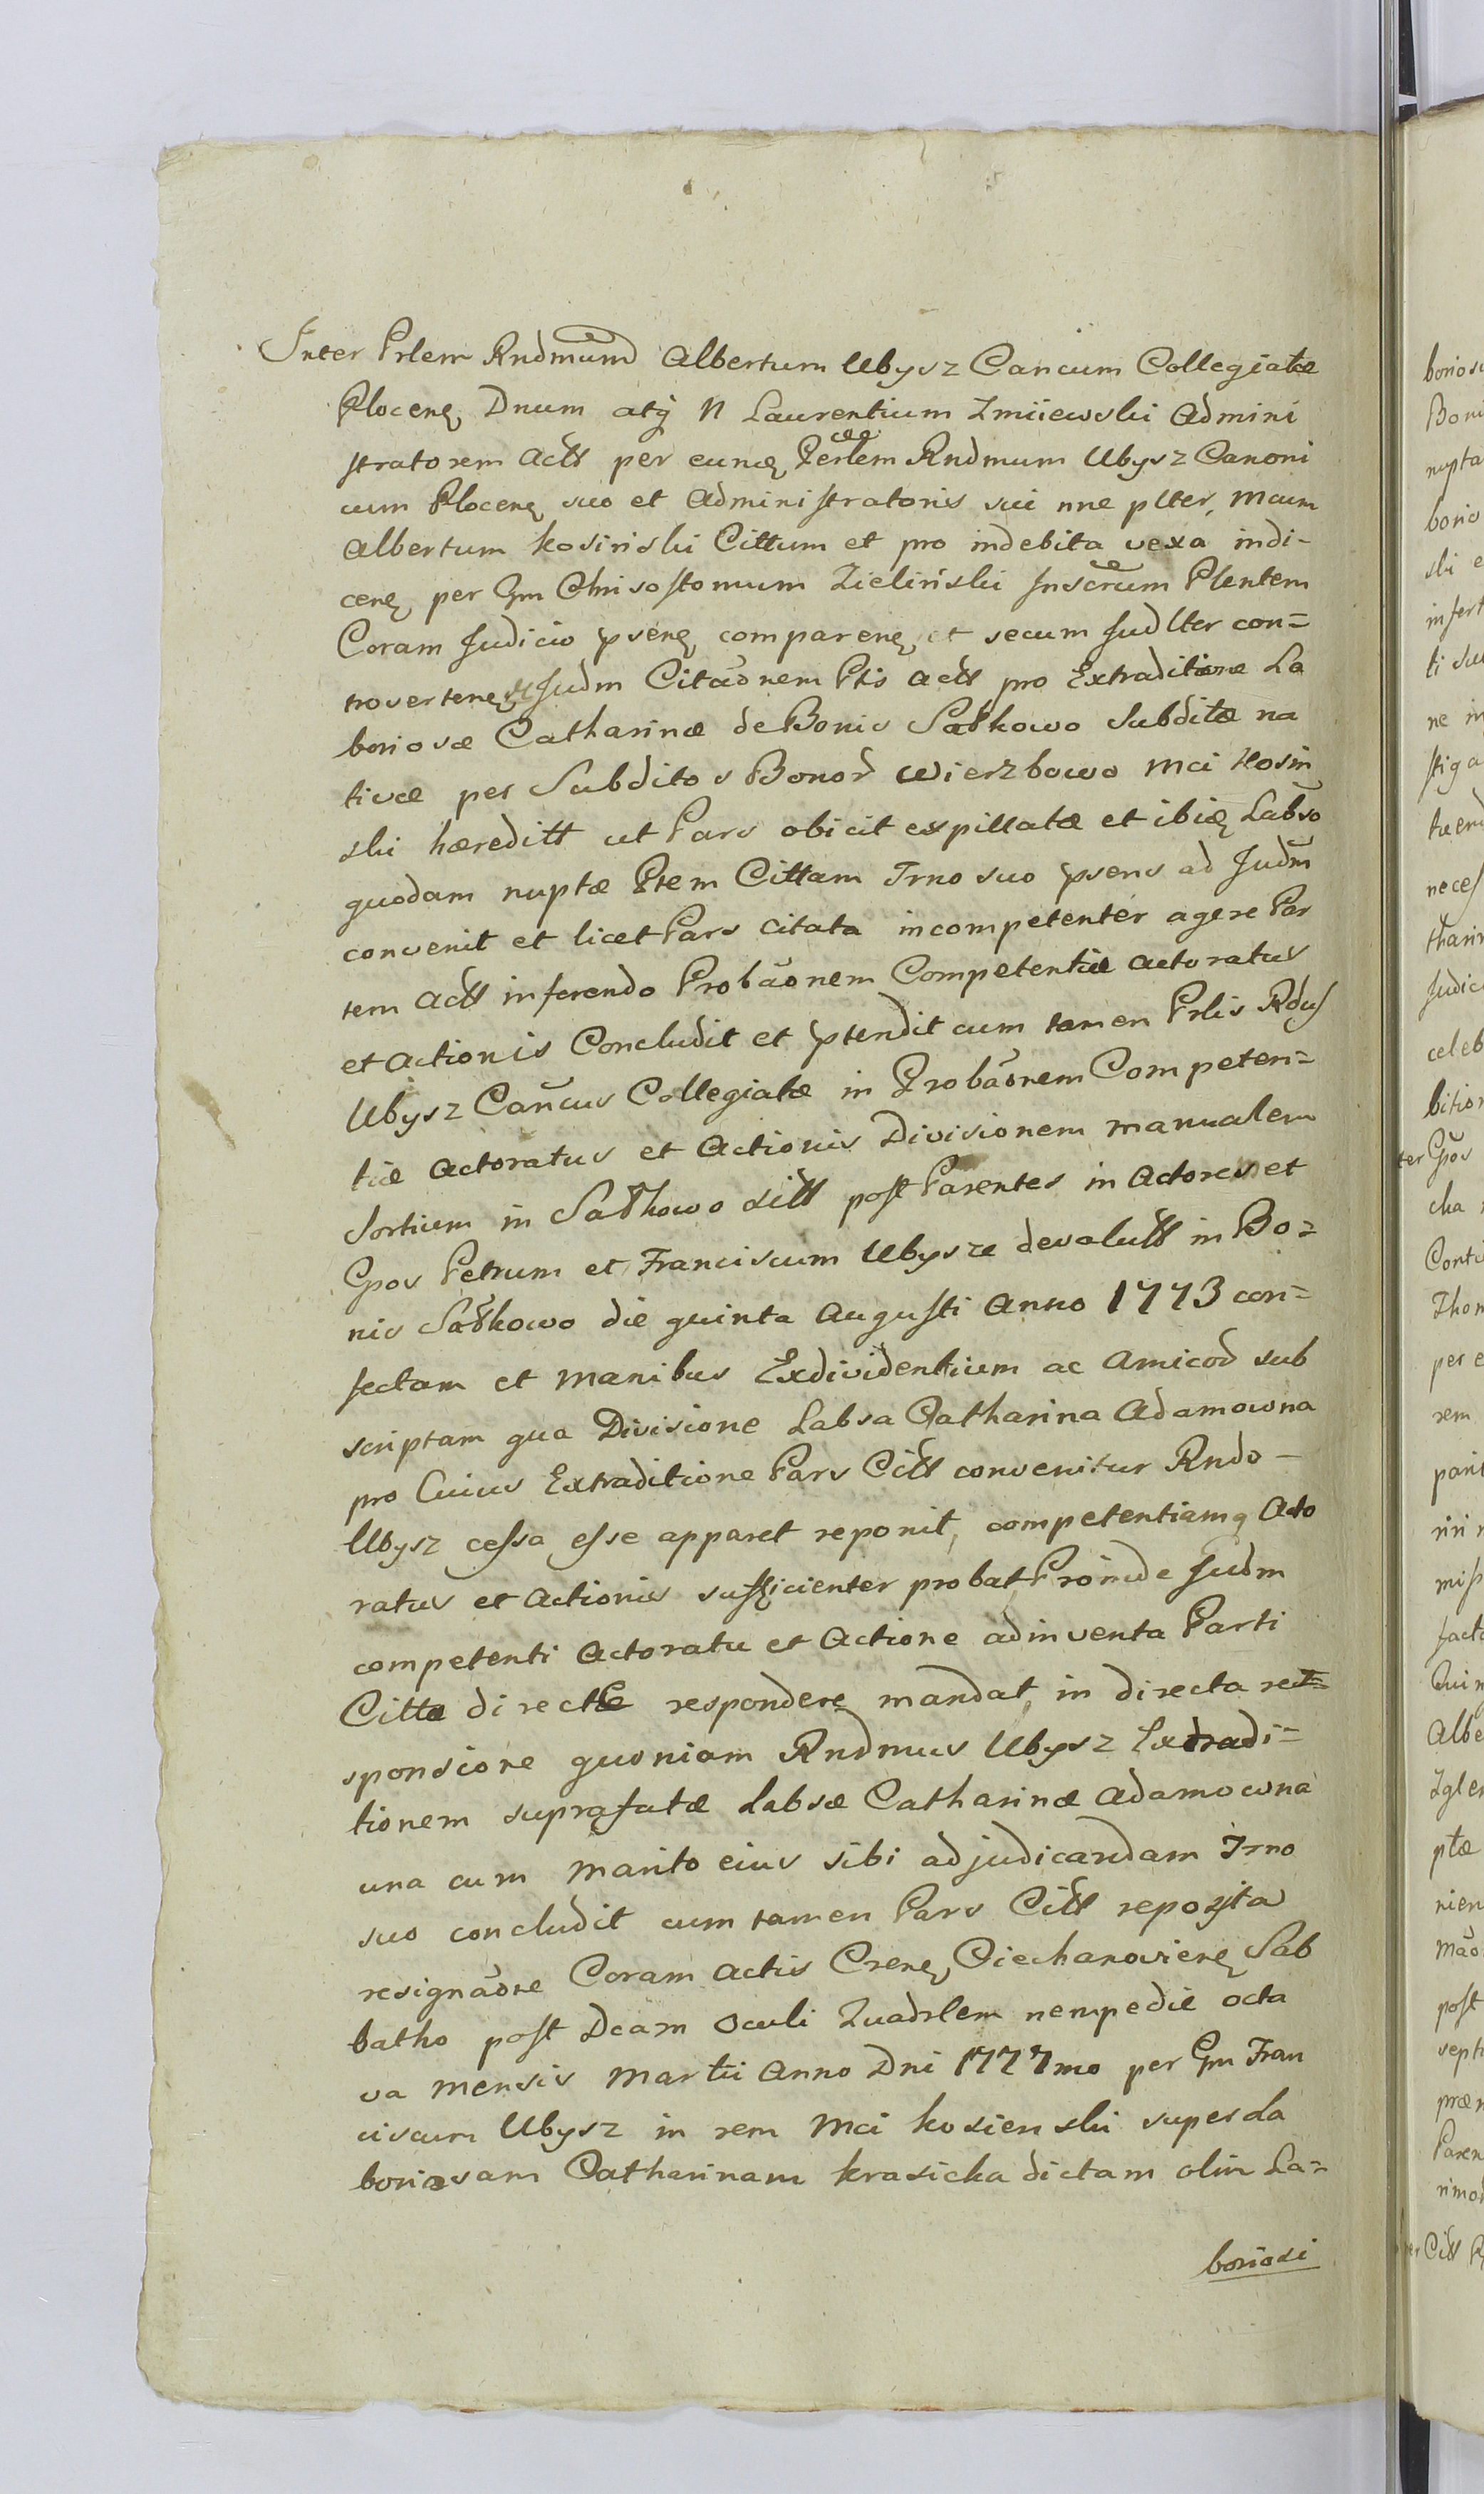 Inter Prlem Rndmum Albertum Ubysz Cancum Collegiatæ
Plocenę Dnum atq N Laurentium Zmiiewski Admini
stratorem Actt per eunę Perlem Rndmum Ubysz Canoni
cum Plocenę suo et Administratoris sui nne plter, Mcum
Albertum Kosinski Cittum et pro indebita vexa indi-
cenę per Gm Chrisostomum Zieliński Inscrum Plentem
Coram Judicio pṡenę comparenę, et secum Judlter con=
trovertenę Judm Citaōnem Ptis Actt pro Extraditione La
boriosæ Catharinæ de Bonis Sarkowo Subditæ na
tivæ per Subditos Bonor Wierzbowo Mci Kosin
ski hæreditt ut Pars obicit expillatæ et ibię Labso
quodam nuptæ Ptem Cittam Trno suo psens ad Judm
convenit et licet Pars Citata incompetenter agere Par
tem Actt inferendo Probaōnem Competentiæ actoratus
et Actionis Concludit et ptendit cum tamen Prlis Rdus
Ubysz Cancus Collegiatæ in Probaōnem Competen=
tiæ Actoratus et Actionis Divisionem manualem
Sortium in Sarkowo sitt post Parentes in Actores et
Gpos Petrum et Franciscum Ubysze devolutt in Bo=
nis Sarkowo die quinta Augusti Anno 1773 con=
fectam et manibus Exdividentium ac Amicor sub
scriptam qua Divisione Labsa Catharina Adamowna
pro Cuius Extraditione Pars Citt convenitur Rndo -
Ubysz cessa esse apparet reponit, competentiamq Acto
ratus et Actionis sufficienter probat, Proinde Judm
competenti Actoratu et Actione adinventa Parti
Cittæ directe respondere mandat, in directa re=
sponsione quoniam Rndmus Ubysz Extradi=
tionem suprafatæ Labsæ Catharinæ Adamowna
una cum Marito eius sibi adjudicandam Trno
suo concludit cum tamen Pars Citt reposita
resignaōne Coram Actis Crenę Ciechanovienę Sab
batho post Dcam Oculi Quadrlem nempe die octa
va Mensis Martii Anno Dni 1777mo per Gm Fran
ciscum Ubysz in rem Mci Kosienski super La
boriosam Catharinam Krasicka dictam olim La=
boriosi